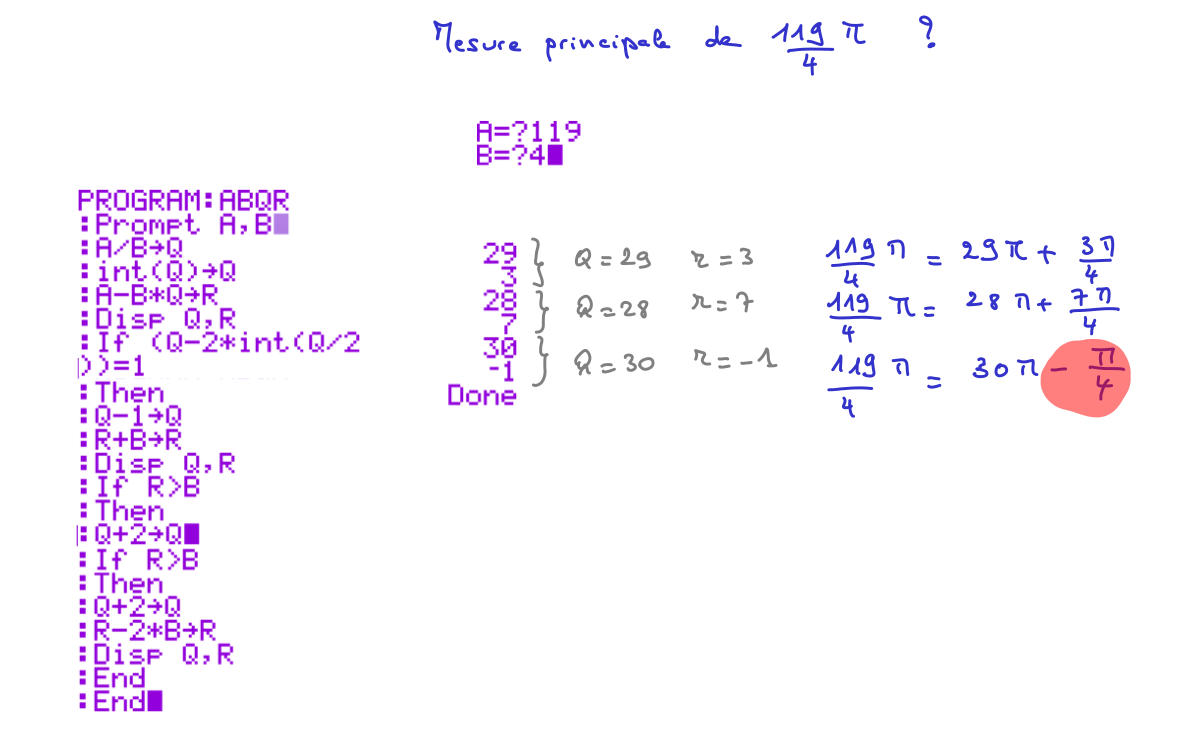 Mesure principale de 119/4 π ?
A=?119
B=?4
PROGRAM:ABQR
:Prompt A,B
:A/B→Q
:int(Q)→Q
:A-B*Q→R
:Disp Q,R
:If (Q-2*int(Q/2
))=1
:Then
:Q-1→Q
:R+B→R
:Disp Q,R
:If R>B
:Then
:Q+2→Q
:If R>B
:Then
:Q+2→Q
:R-2*B→R
:Disp Q,R
:End
:End
29
3
28
7
30
-1
Done
Q = 29 r = 3
Q = 28 r = 7
Q = 30 r = -1
119/4 π = 29π + 3π/4
119/4 π = 28π + 7π/4
119/4 π = 30π - π/4